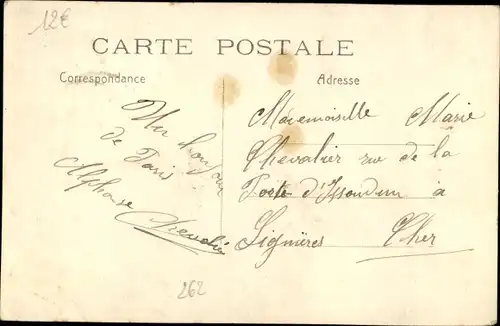 12€
CARTE POSTALE
Correspondance
Adresse
Un bonjour
de Paris
Alphonse
Chevalier
Mademoiselle Marie
Chevalier rue de la
Porte d'Issoudun à
Lignières Cher
262